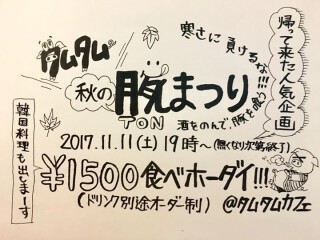 タムタム
寒さに負けるな!!!
帰って来た人気企画
秋の豚まつり
TON
酒をのんで、豚を喰う!!!
2017.11.11(土)19時〜(無くなり次第終了)
韓国料理も出しまーす
¥1500食べホーダイ!!!
(ドリンク別途オーダー制)@タムタムカフェ